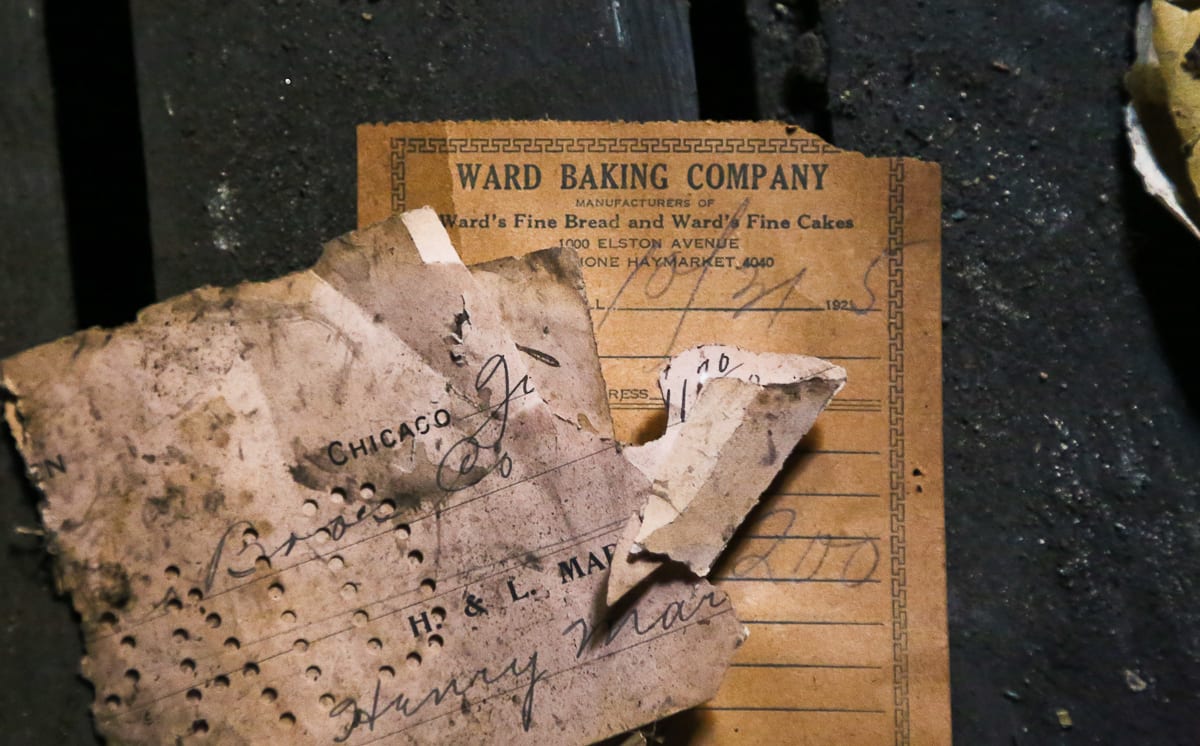 WARD BAKING COMPANY
MANUFACTURERS OF
Ward's Fine Bread and Ward's Fine Cakes
1000 ELSTON AVENUE
HONE HAYMARKET 4040
L 10/21 1925
RESS
200
N
CHICAGO
Co
Bros
H. & L. MAR
Henry Mar